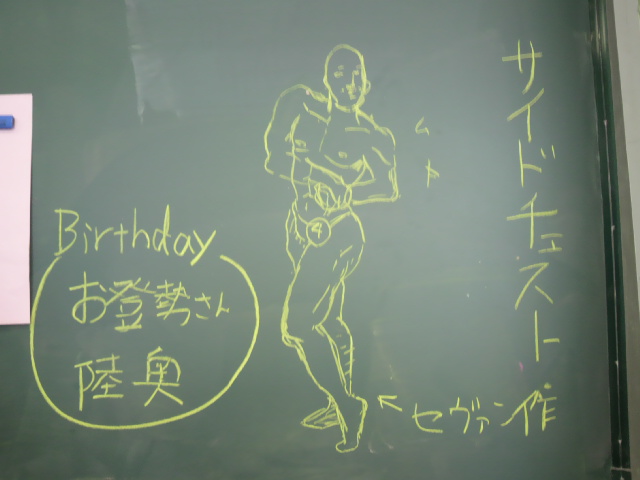 サイドチェスト
ムト
4
Birthday
お登勢さん
陸奥
← セヴァン作